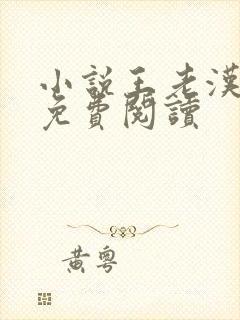 小說王老漢
免費閱讀
黃粵